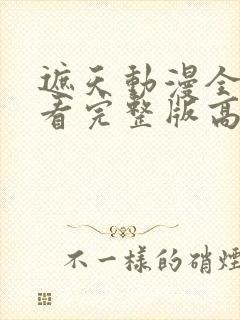 遮天動漫全
看完整版高
不一樣的硝煙